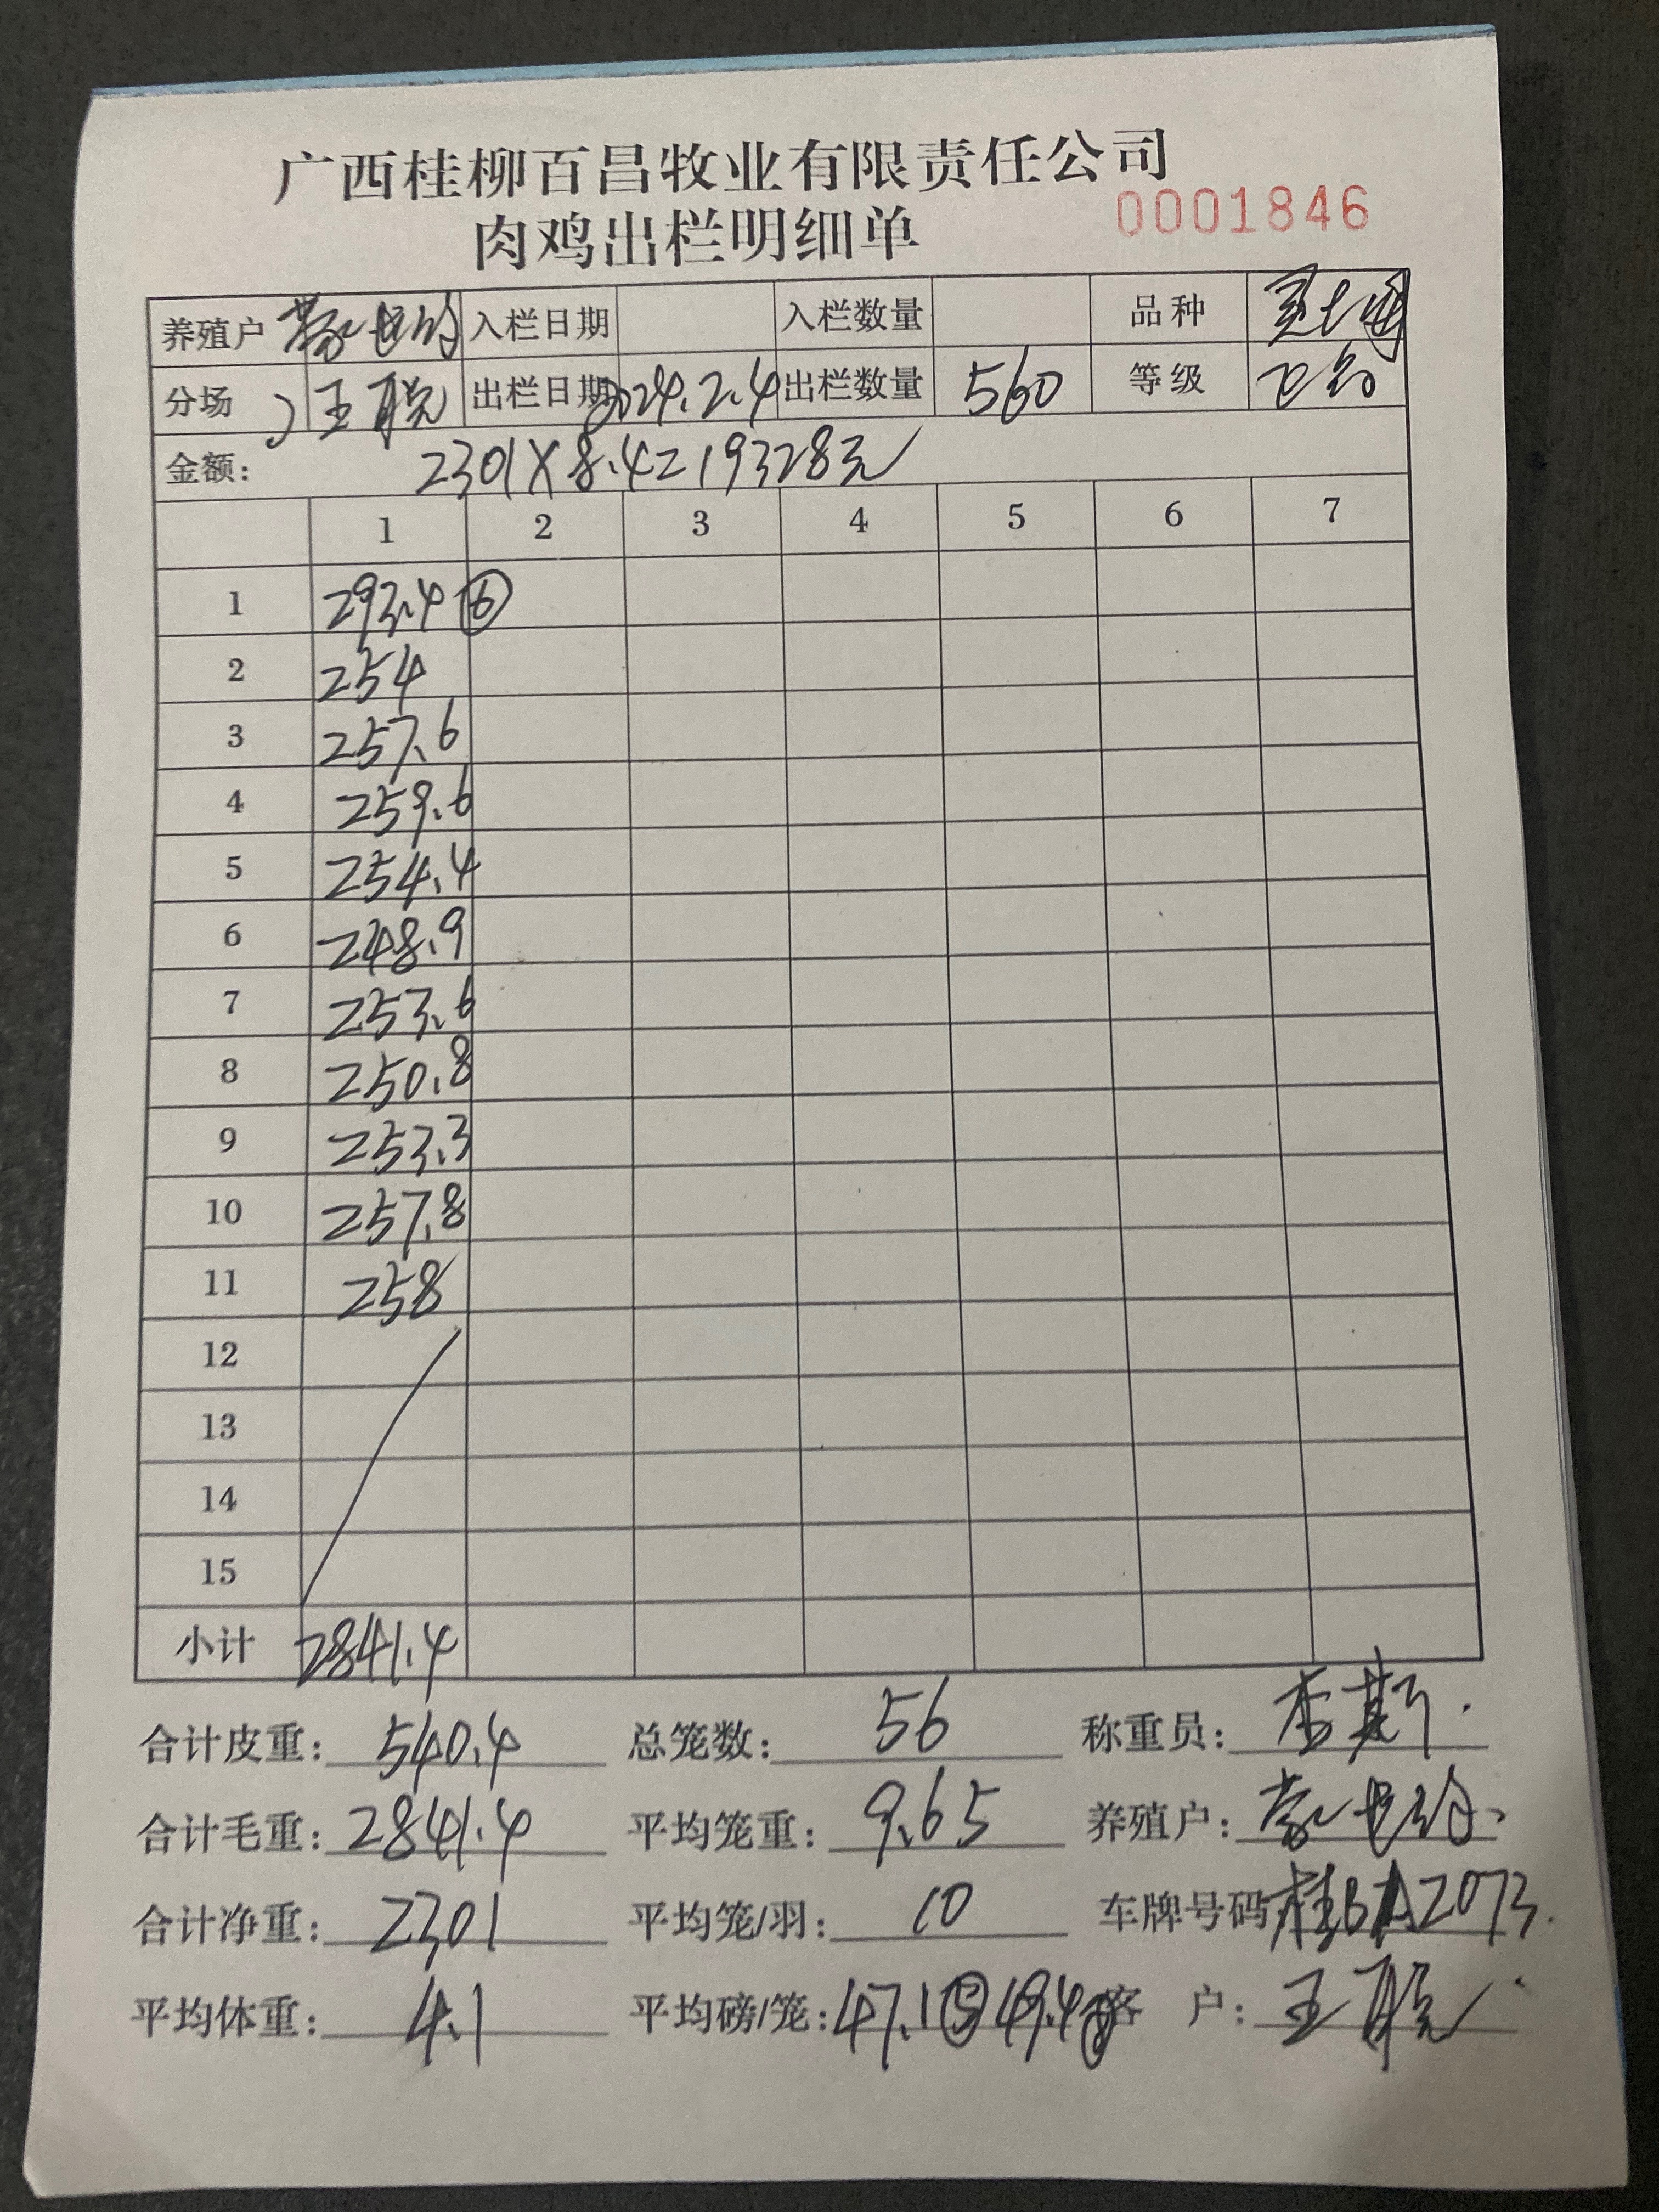 广西桂柳百昌牧业有限责任公司
肉鸡出栏明细单 0001846
养殖户 入栏日期 入栏数量 品种
分场 王聪 出栏日期 2024.2.4 出栏数量 560 等级
金额: 2301X8.4=19328元
1 2 3 4 5 6 7
1 293.4 ⑥
2 254
3 257.6
4 259.6
5 254.4
6 248.9
7 253.6
8 250.8
9 253.3
10 257.8
11 258
12
13
14
15
小计 2841.4
合计皮重: 540.4 总笼数: 56 称重员:
合计毛重: 2841.4 平均笼重: 9.65 养殖户:
合计净重: 2301 平均笼/羽: 10 车牌号码 桂BA2073
平均体重: 4.1 平均磅/笼: 47.1⑤ 49.4 客 户: 王聪